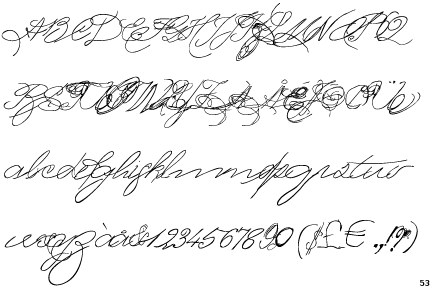 ABCDEFGHIJKLMNOPQ
RSTUVWXYZ
abcdefghijklmnopqrstuv
wxyz àåé&1234567890 ($£€.,!?)
53